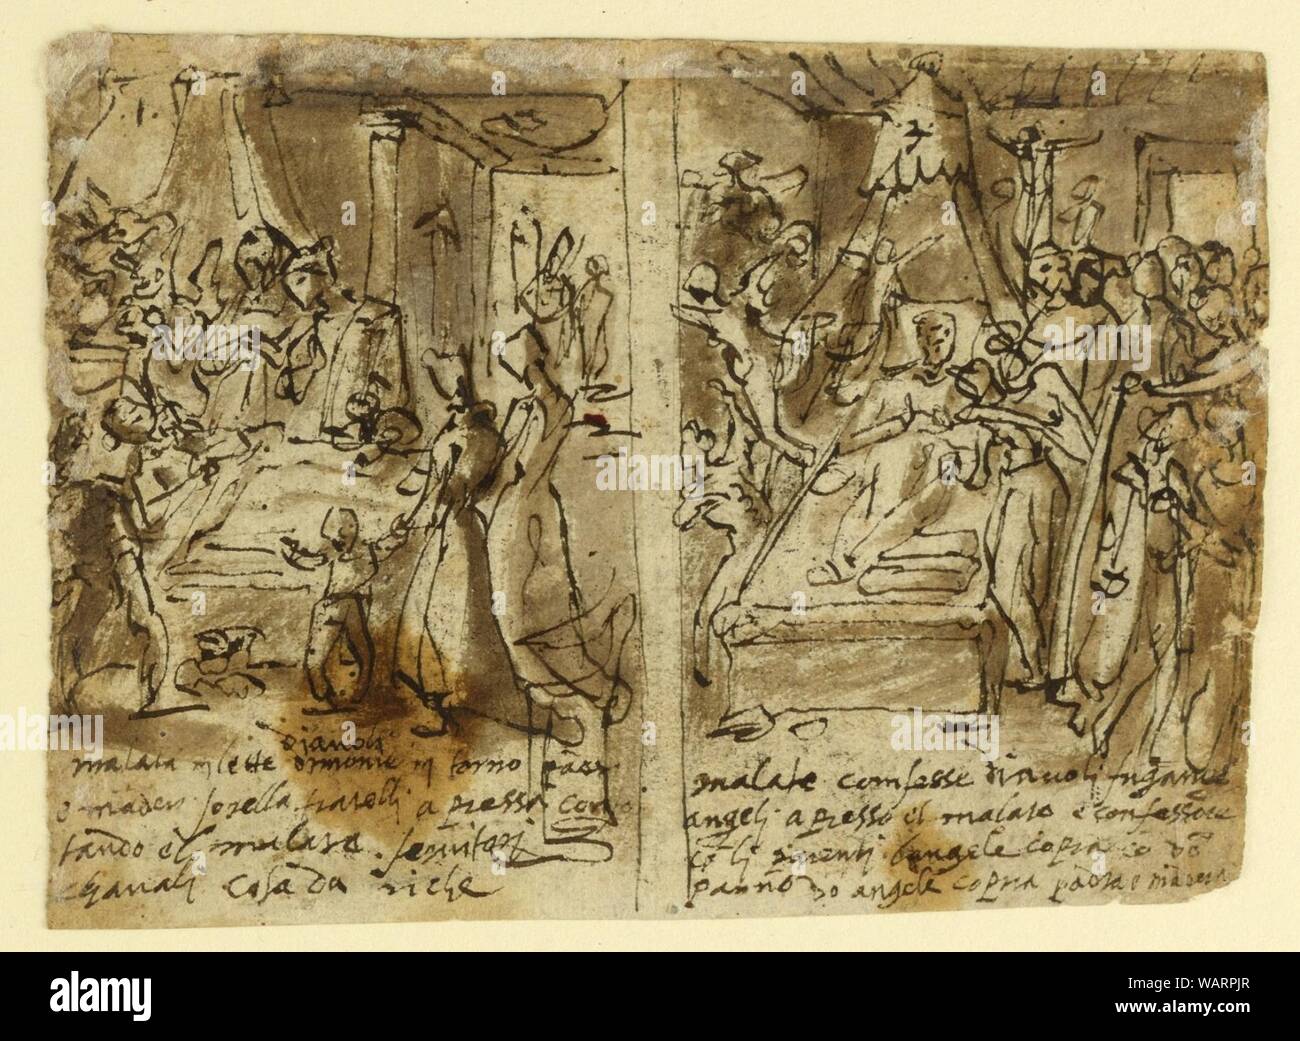 diavoli
malata in lette dimonie in torno padr
e madre sorella fratelli a pressa con
tando el malato. servitori
chavali cosa da riche
malate comfesse diavoli fugande
angeli a presso el malato e confessore
co li parenti. angele copra co
panno angele copra padra e madra
alamy
Image ID: WARPJR
www.alamy.com